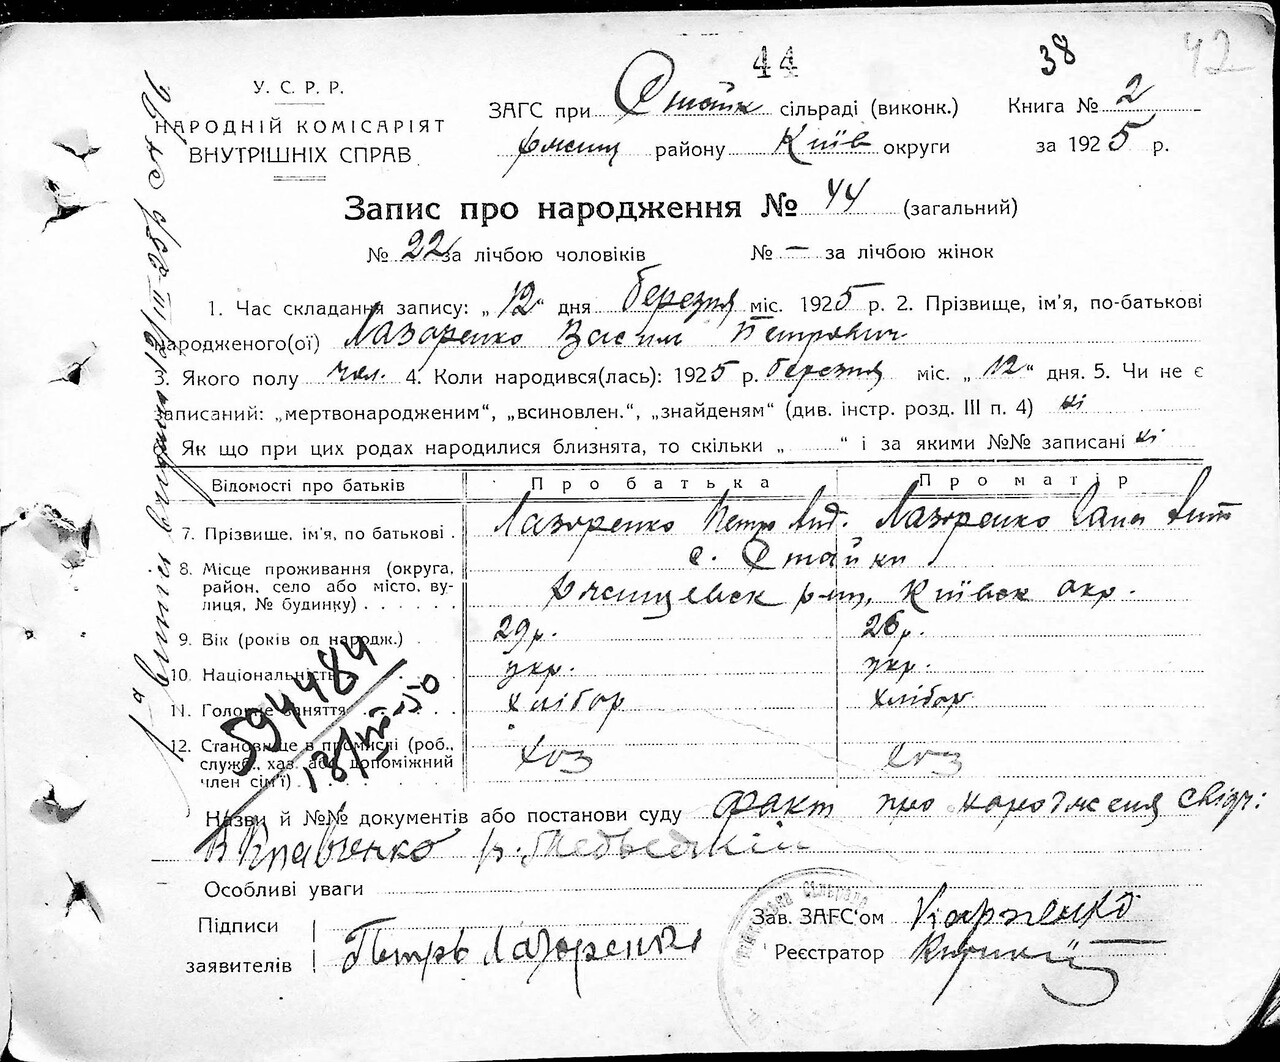 44 38 42
У. С. Р. Р.
НАРОДНІЙ КОМІСАРІЯТ
ВНУТРІШНІХ СПРАВ.
ЗАГС при Стайк сільраді (виконк.)
Книга № 2
ржищ району Київ округи
за 1925 р.
Запис про народження № 44 (загальний)
№ 22 за лічбою чоловіків № — за лічбою жінок
1. Час складання запису: „12" дня березня міс. 1925 р. 2. Прізвище, ім'я, по-батькові
народженого(ої) Лазоренко Василь Петрович
3. Якого полу чол. 4. Коли народився(лась): 1925 р. березня міс. „12" дня. 5. Чи не є
записаний: „мертвонародженим", „всиновлен.", „знайденям" (див. інстр. розд. III п. 4) ні
Як що при цих родах народилися близнята, то скільки „ " і за якими №№ записані ні
Відомості про батьків Про батька Про матір
7. Прізвище, ім'я, по батькові . Лазоренко Петро Лазоренко
8. Місце проживання (округа, с. Стайки
район, село або місто, ву-
лиця, № будинку) . . . . . . Ржищевск р-ну, Київск окр.
9. Вік (років од народж.) 29 р. 26 р.
10. Національність укр. укр.
11. Головне заняття хлібор хлібор
12. Становище в промислі (роб.,
служб., хаз. або допоміжний хоз хоз
член сім'ї) . . . . . .
594484
18/VIII-50
Назви й №№ документів або постанови суду Факт про народження свідч:
Кравченко Медведкій
Особливі уваги
Підписи
заявителів Петръ Лазоренко
Зав. ЗАГС'ом
Реєстратор